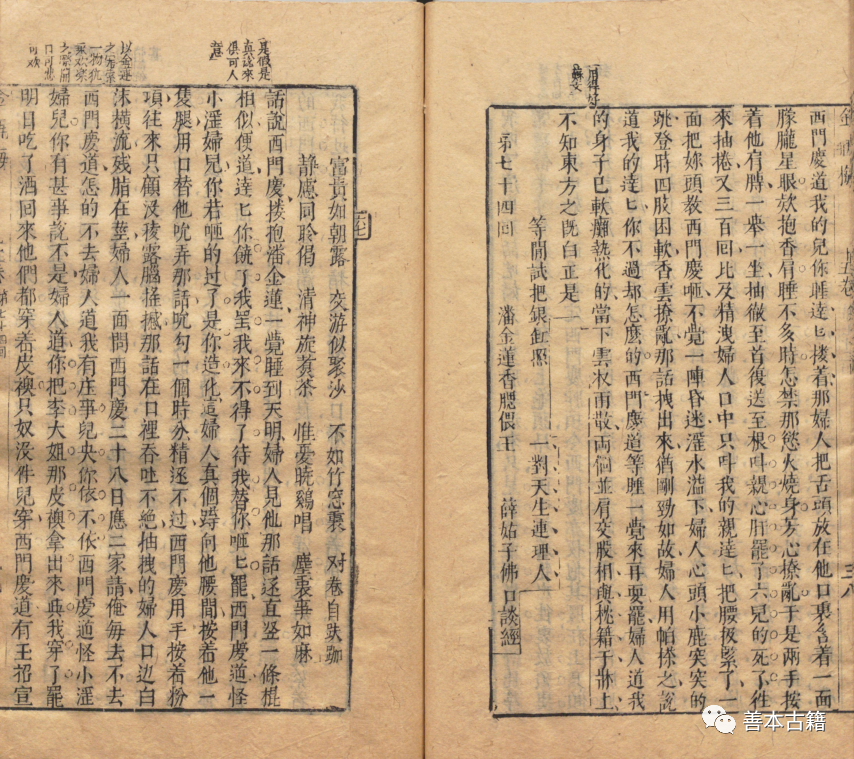 西門慶道我的兒你睡達匕摟着那婦人把舌頭放在他口裏含着一面
朦朧星眼欵抱香肩睡不多時怎禁那慾火燒身芳心撩亂于是兩手按
着他肩膊一舉一坐抽徹至首復送至根叫親心肝罷了六兒的死了徃
來抽捲又三百回比及精洩婦人口中只叫我的親達匕把腰扱緊了一
面把妳頭敎西門慶咂不覺一陣昏迷淫水溢下婦人心頭小鹿突突的
跳登時四肢困軟香雲撩亂那話拽出來猶剛勁如故婦人用帕搽之說
道我的達匕你不過却怎麽的西門慶道等睡一覺來再耍罷婦人道我
的身子已軟癱熱化的當下雲收雨散兩個並肩交股相與枕籍于牀上
不知東方之旣白正是
等閒試把銀缸照 一對天生連理人
第七十四回 潘金蓮香腮偎玉 薛姑子佛口談經
富貴如朝露 交游似聚沙 不如竹窓裏 对卷自趺跏
静慮同聆偈 清神旋煑茶 惟憂曉鷄唱 塵裏事如麻
話說西門慶摟抱潘金蓮一覺睡到天明婦人見他那話还直竖一條棍
相似便道達匕你饒了我罢我來不得了待我替你咂匕罷西門慶道怪
小淫婦兒你若咂的过了是你造化這婦人真個蹲向他腰間按着他一
隻腿用口替他吮弄那話吮勾一個時分精还不过西門慶用手按着粉
項往來只顧没稜露腦搖撼那話在口裡吞吐不絶抽拽的婦人口边白
沫橫流残脂在莖婦人一面問西門慶二十八日應二家請俺每去不去
西門慶道怎的不去婦人道我有庄事兒央你依不依西門慶道怪小淫
婦兒你有甚事說不是婦人道你把李大姐那皮襖拿出來与我穿了罷
明日吃了酒回來他們都穿着皮襖只奴没件兒穿西門慶道有王招宣
是假是
真説來
俱可人
意
以金蓮
一物
口可
善本古籍